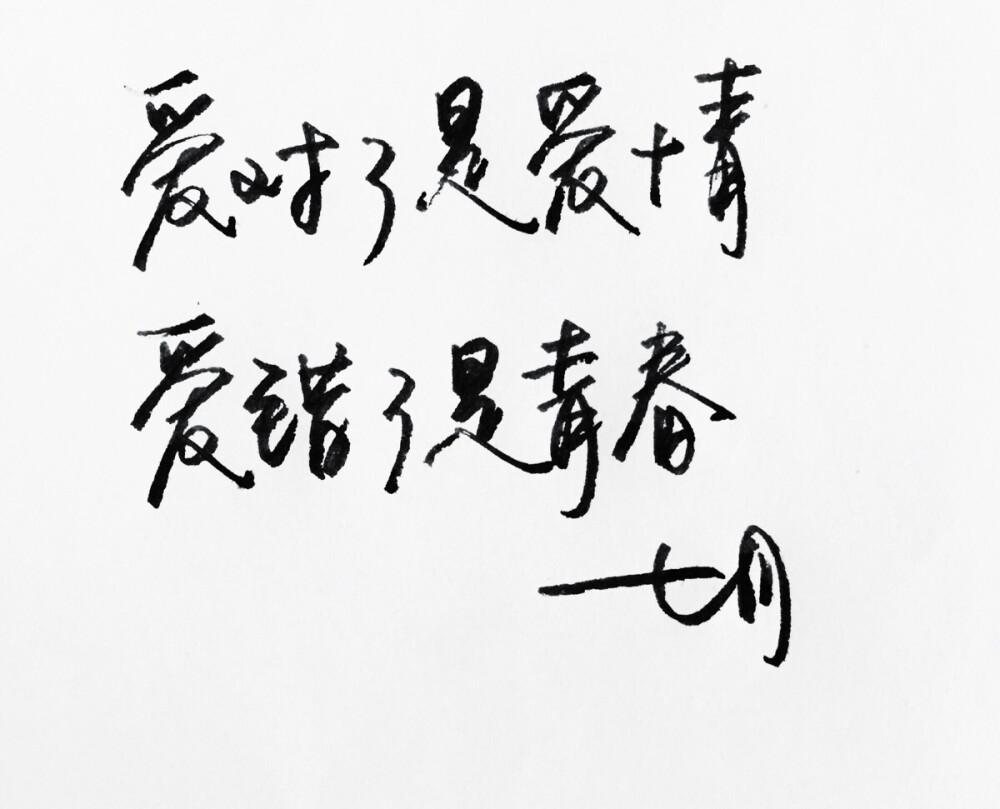 爱对了是爱情
爱错了是青春
七月